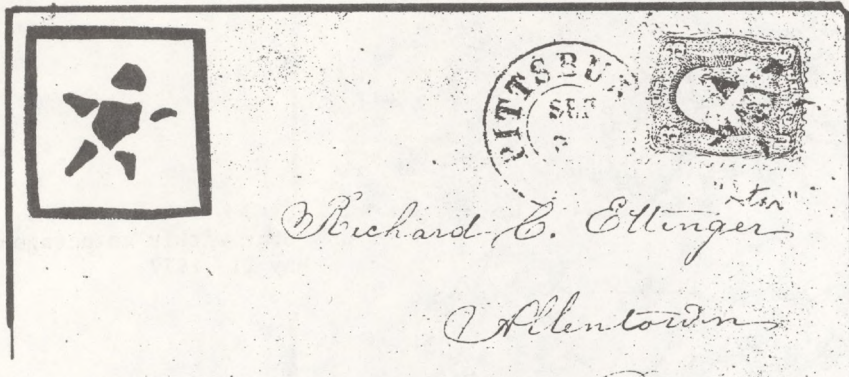 PITTSBU
SEP
"Star"
Richard C. Ettinger
Allentown